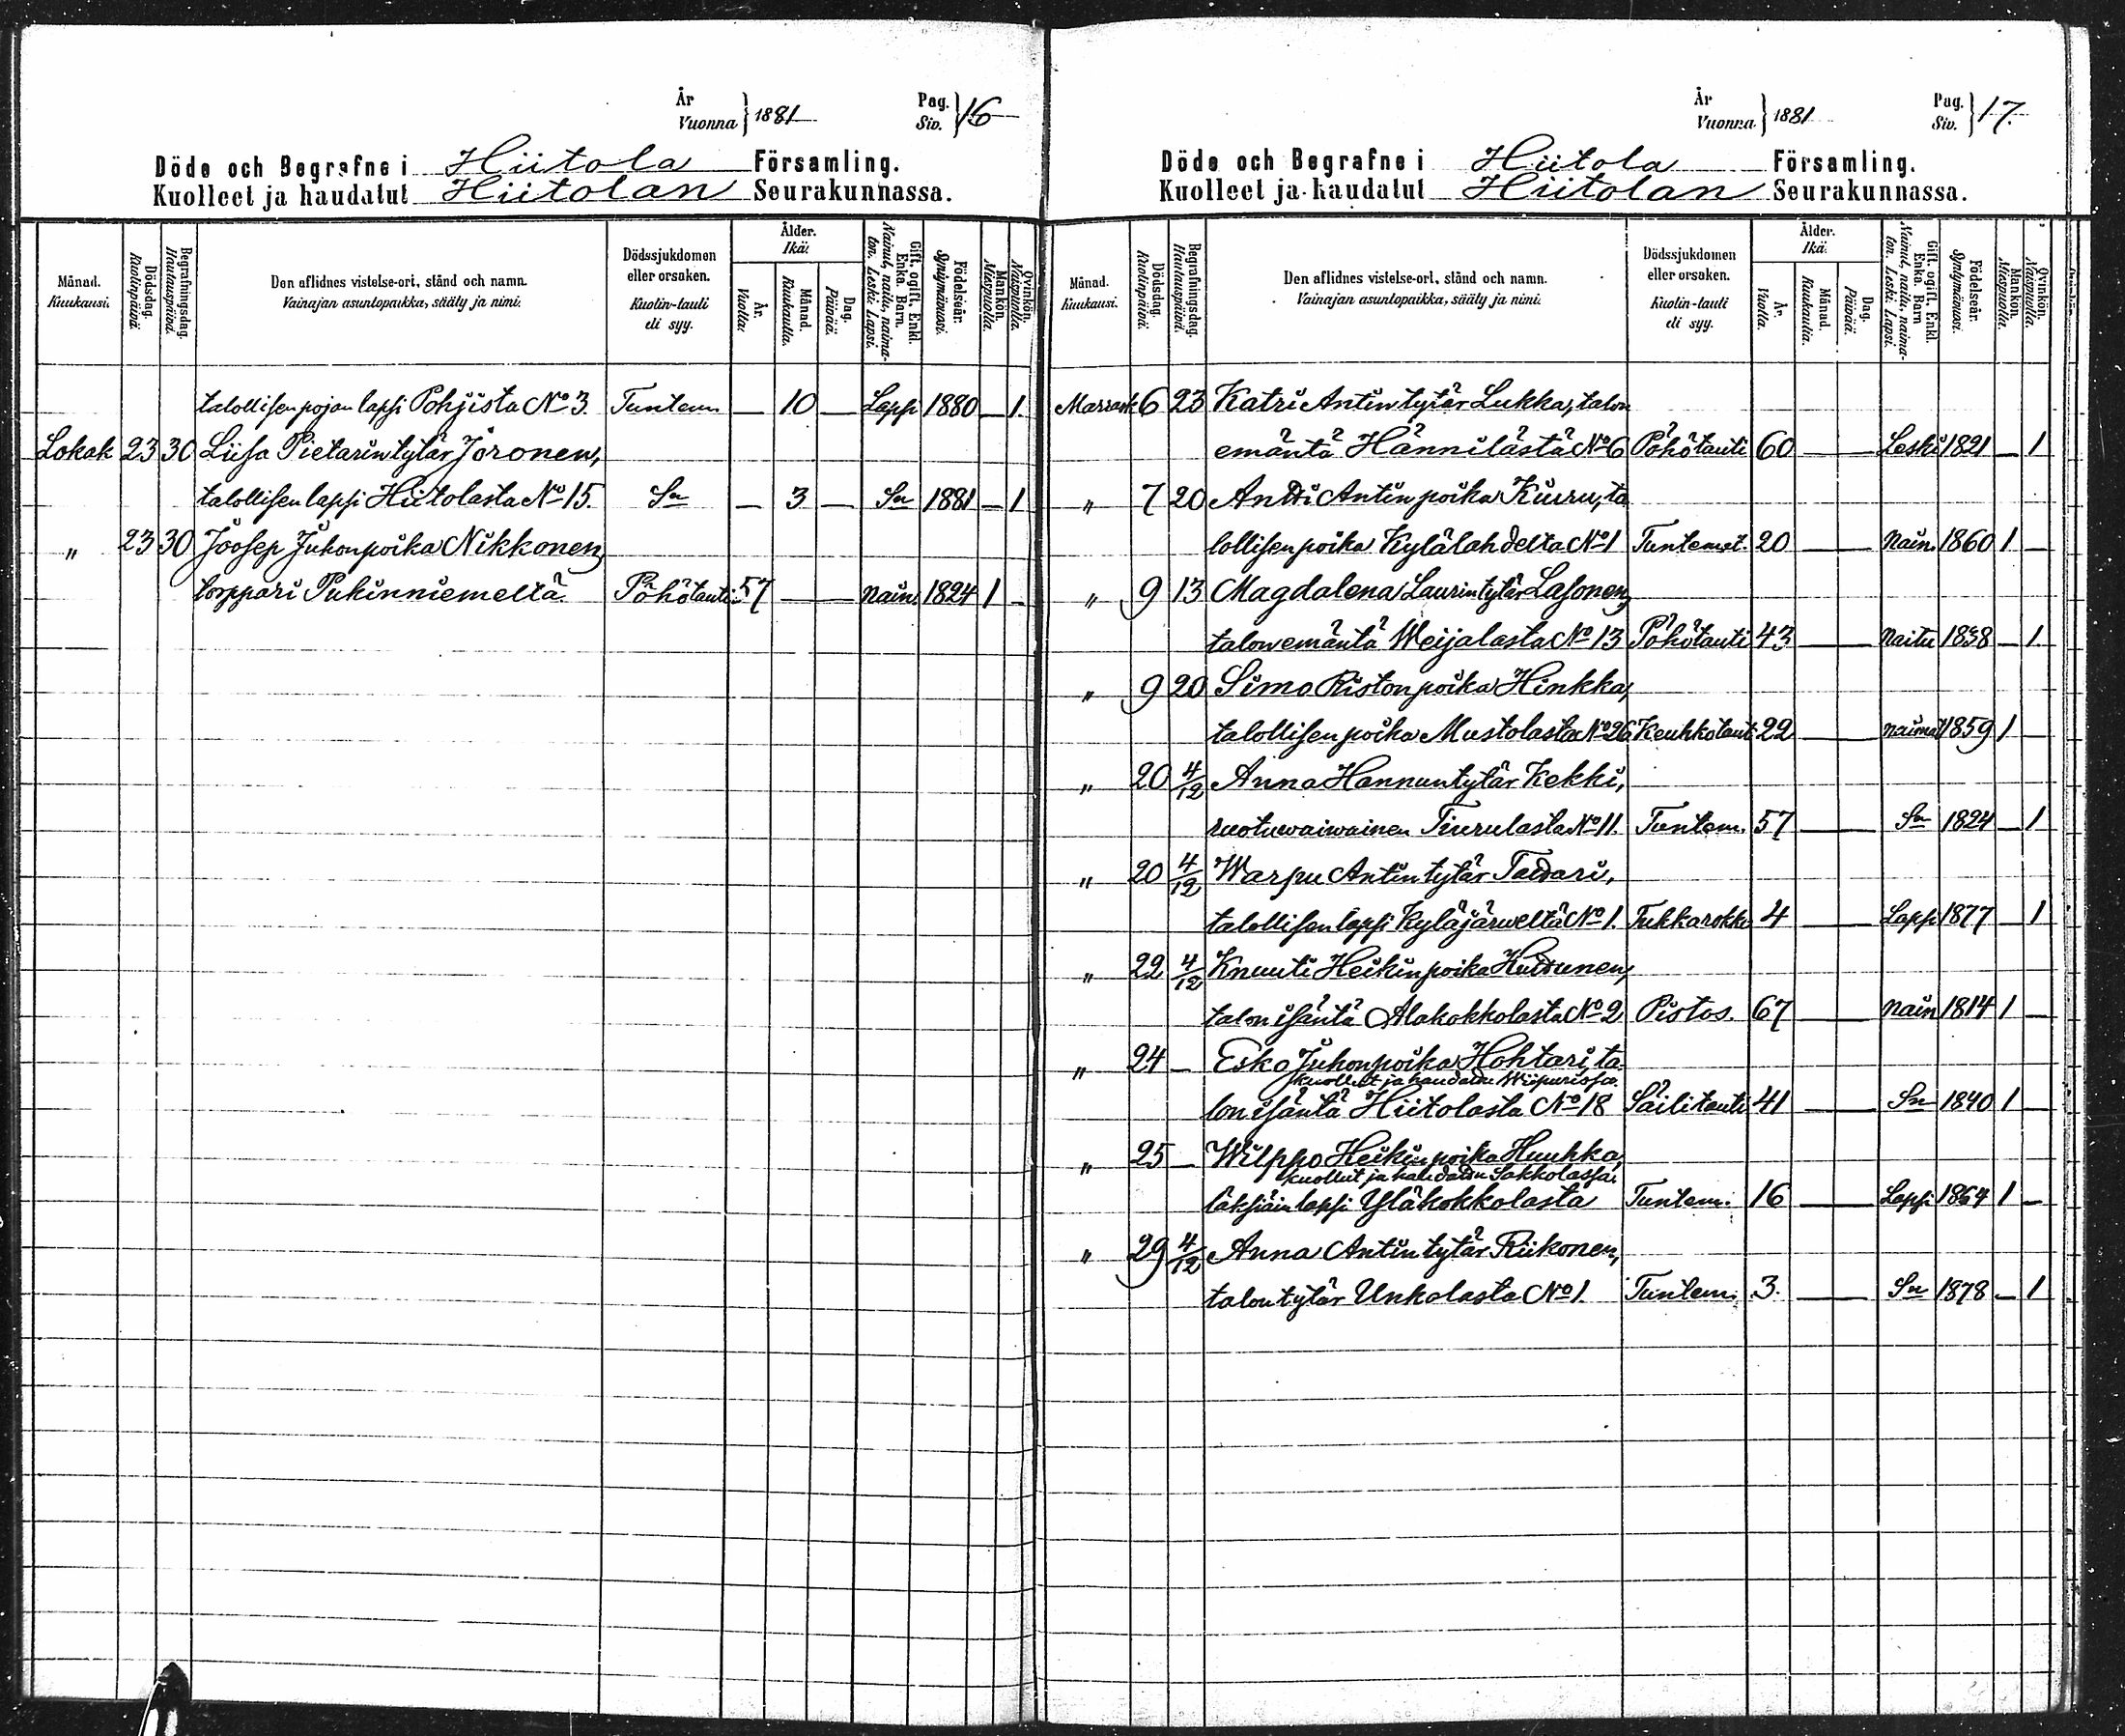 År
Vuonna } 1881
Pag.
Siv. } 16
Döde och Begrafne i Hiitola Församling.
Kuolleet ja haudatut Hiitolan Seurakunnassa.
Månad. Kuukausi.
Dödsdag. Kuolinpäivä.
Begrafningsdag. Hautauspäivä.
Den aflidnes vistelse-ort, stånd och namn.
Vainajan asuntopaikka, sääty ja nimi.
Dödssjukdomen eller orsaken.
Kuolin-tauti eli syy.
Ålder. Ikä.
År. Vuotta.
Månad. Kuukautta.
Dag. Päivää.
Gift, ogift, Enkl. Enka. Barn.
Nainut, naitu, naimaton. Leski. Lapsi.
Födelseår. Syntymävuosi.
Mankön. Miespuolia.
Qvinkön. Naispuolia.
talollisen pojan lapsi Pohjista No 3. Tuntem. — 10 — Lapsi 1880 — 1.
Lokak 23 30 Liisa Pietarintytär Joronen,
talollisen lapsi Hiitolasta No 15. Sn — 3 — Sn 1881 — 1
" 23 30 Joosep Juhonpoika Nikkonen,
torppari Pukinniemeltä. Pöhötauti 57 — Nain. 1824 1 —
År
Vuonna } 1881
Pag.
Siv. } 17.
Döde och Begrafne i Hiitola Församling.
Kuolleet ja haudatut Hiitolan Seurakunnassa.
Månad. Kuukausi.
Dödsdag. Kuolinpäivä.
Begrafningsdag. Hautauspäivä.
Den aflidnes vistelse-ort, stånd och namn.
Vainajan asuntopaikka, sääty ja nimi.
Dödssjukdomen eller orsaken.
Kuolin-tauti eli syy.
Ålder. Ikä.
År. Vuotta.
Månad. Kuukautta.
Dag. Päivää.
Gift, ogift, Enkl. Enka. Barn
Nainut, naitu, naimaton. Leski. Lapsi.
Födelseår. Syntymävuosi.
Mankön. Miespuolia.
Qvinkön. Naispuolia.
Marrask 6 23 Katri Antintytär Lukka, talon
emäntä Hännilästä No 6 Pöhötauti 60 — Leski 1821 — 1
" 7 20 Antti Antinpoika Kiuru, ta
lollisen poika Kylälahdelta No 1 Tuntemat. 20 — Nain. 1860 1 —
" 9 13 Magdalena Laurintytär Lasonen,
talon emäntä Weijalasta No 13 Pöhötauti 43 — Naitu 1838 — 1.
" 9 20 Simo Ristonpoika Hinkka,
talollisen poika Mustolasta No 26 Keuhkotaut 22 — naimat 1859 1 —
" 20 4/12 Anna Hannuntytär Kekki,
ruotuwaiwainen Tiurulasta No 11. Tuntem. 57 — Sn 1824 — 1
" 20 4/12 Warpu Antintytär Tattari,
talollisen lapsi Kyläjärweltä No 1. Tuhkarokko 4 — Lapsi 1877 — 1
" 22 4/12 Knuuti Heikinpoika Kuttunen,
talon isäntä Alakokkolasta No 2 Pistos. 67 — Nain 1814 1 —
" 24 — Esko Juhonpoika Hohtari, ta
kuollut ja haudattu Wiipurissa.
lon isäntä Hiitolasta No 18 Säilitauti 41 — Sn 1840 1 —
" 25 — Wilppo Heikinpoika Huuhka,
kuollut ja haudattu Sakkolassa.
läksiäin lapsi Yläkokkolasta Tuntem. 16 — Lapsi 1864 1 —
" 29 4/12 Anna Antintytär Riikonen,
talontytär Unkolasta No 1. Tuntem. 3. — Sn 1878 — 1